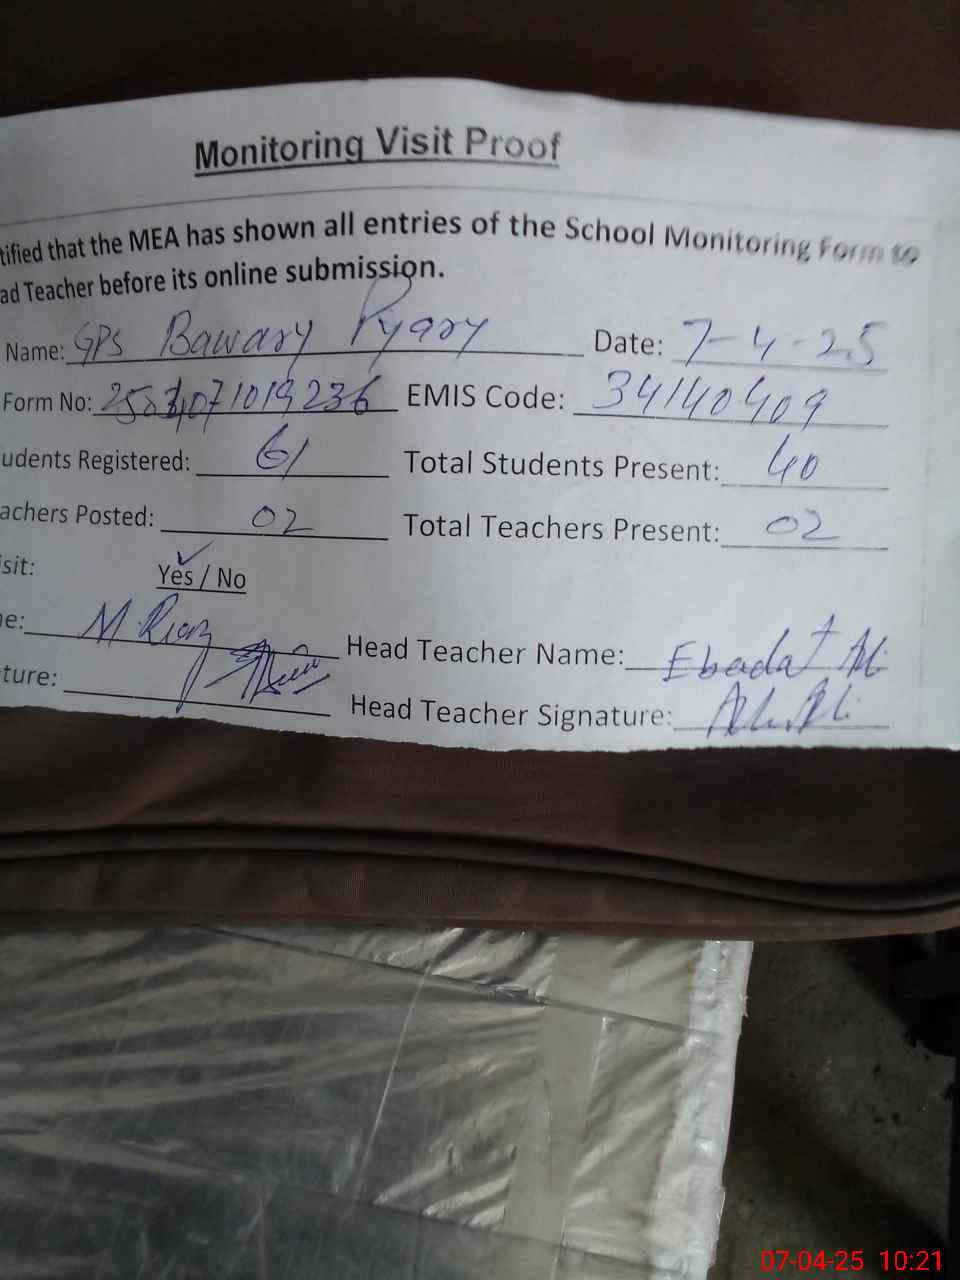 Monitoring Visit Proof
tified that the MEA has shown all entries of the School Monitoring Form to
ad Teacher before its online submission.
Name: GPS Bawary Pyary Date: 7-4-25
Form No: EMIS Code: 34140409
udents Registered: 61 Total Students Present: 40
achers Posted: 02 Total Teachers Present: 02
isit: Yes / No
e: M. Riaz Head Teacher Name: Ebadat Ali
ture: Head Teacher Signature:
07-04-25 10:21